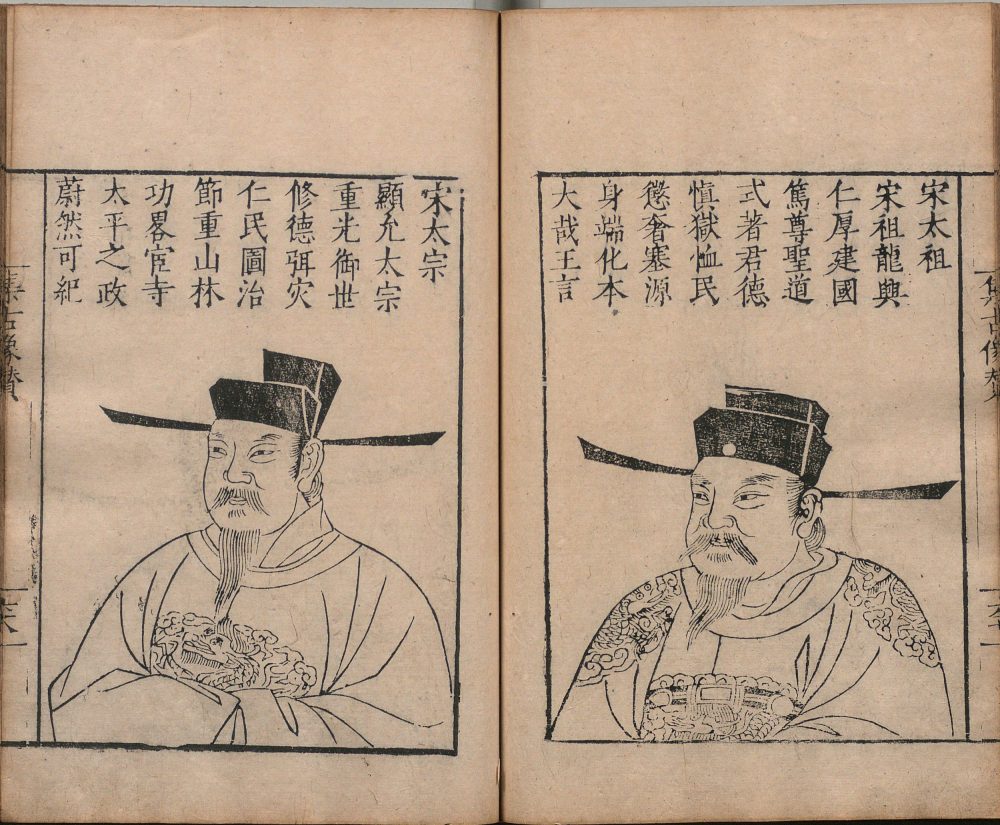 宋太祖
宋祖龍興
仁厚建國
篤尊聖道
式著君德
慎獄恤民
懲奢塞源
身端化本
大哉王言
集古像贊
宋太宗
顯允太宗
重光御世
修德弭灾
仁民圖治
節重山林
功畧宦寺
太平之政
蔚然可紀
集古像贊